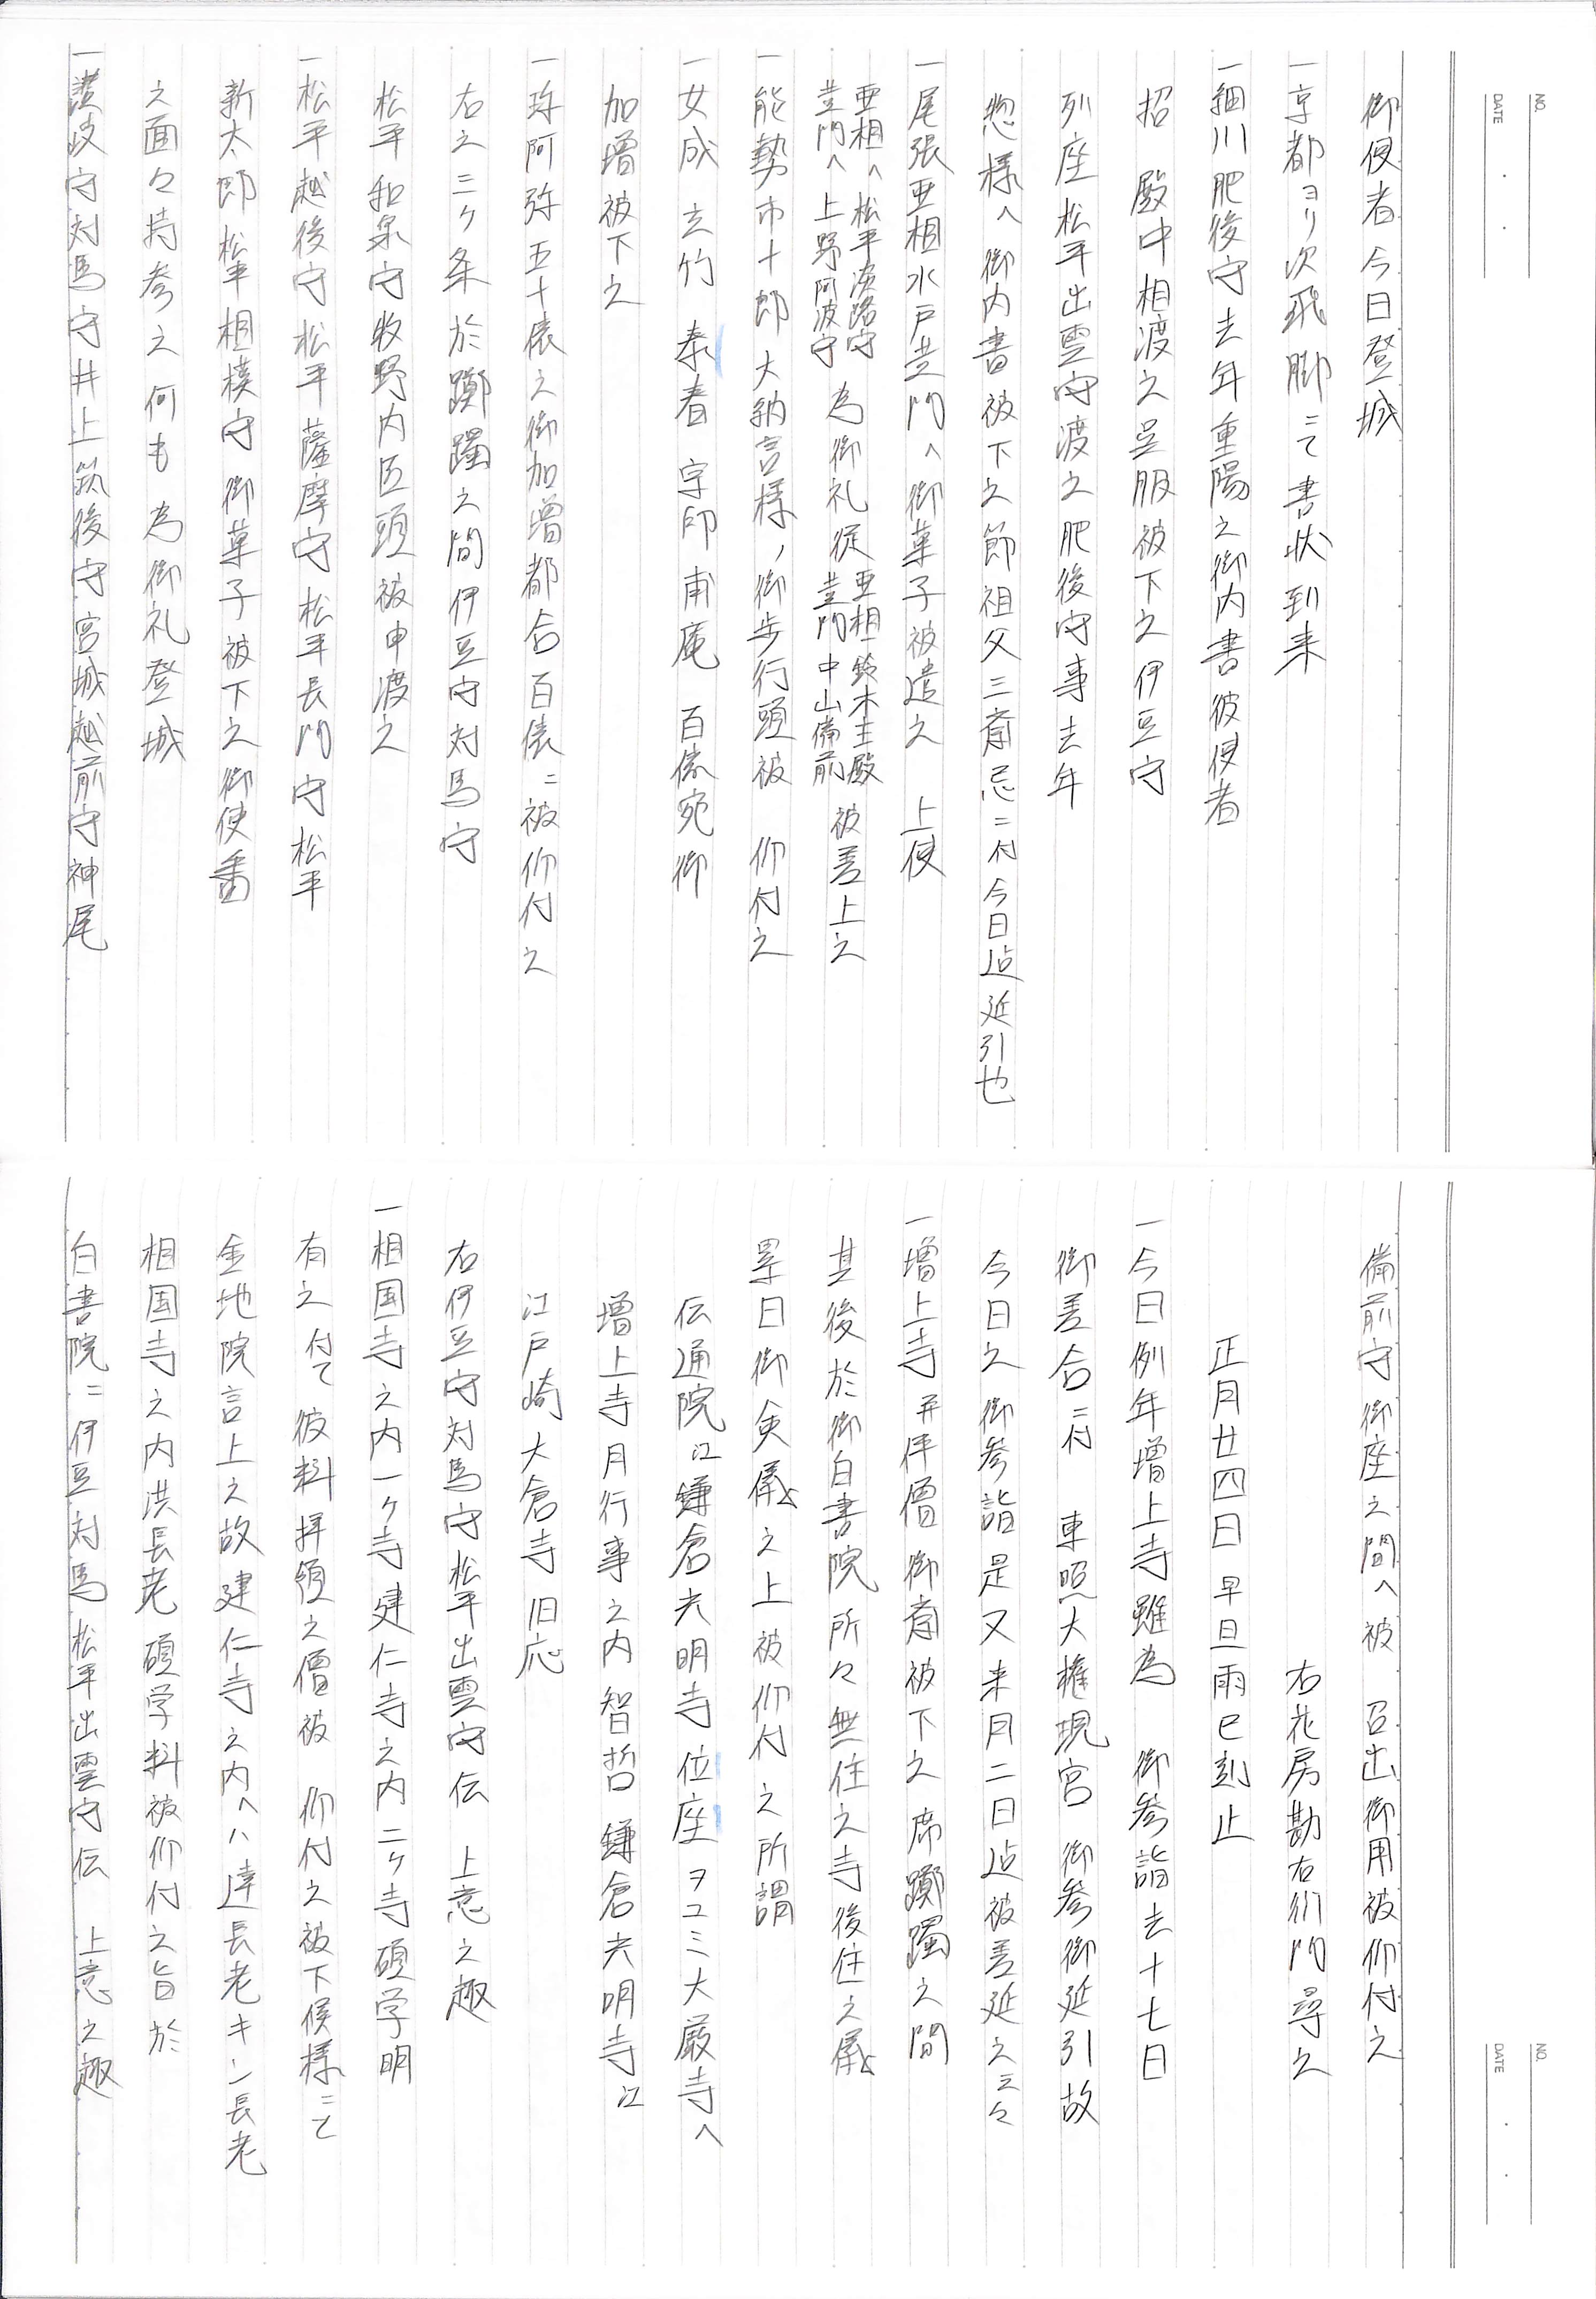 NO.
DATE
御使者今日登城
一京都ヨリ次飛脚ニて書状到来
一細川肥後守去年重陽之御内書彼使者
招 殿中相渡之呈服被下之伊豆守
列座松平出雲守渡之肥後守事去年
惣様へ御内書被下之節祖父三斎忌ニ付今日迠延引也
一尾張亜相水戸黄門へ御菓子被遣之 上使
亜相へ松平淡路守
黄門へ上野阿波守
為御礼従
亜相鈴木主殿
黄門中山備前
被差上之
一能勢市十郎大納言様ノ御歩行頭被 仰付之
一女成 玄竹 泰春 宗印 甫庵 百俵宛御
加増被下之
一珎阿弥五十俵之御加増都合百俵ニ被仰付之
右之三ケ条於躑躅之間伊豆守対馬守
松平和泉守牧野内匠頭被申渡之
一松平越後守松平薩摩守松平長門守松平
新太郎松平相模守御菓子被下之御使番
之面々持参之何も為御礼登城
一讃岐守対馬守井上筑後守宮城越前守神尾
NO.
DATE
備前守御座之間へ被 召出御用被仰付之
右花房勘右衛門尋之
正月廿四日 早旦雨巳刻止
一今日例年増上寺雖為 御参詣去十七日
御差合ニ付 東照大権現宮御参御延引故
今日之御参詣是又来月二日迠被差延之云々
一増上寺并伴僧御斎被下之席躑躅之間
其後於御白書院所々無住之寺後住之儀
累日御僉儀之上被仰付之所謂
伝通院江鎌倉光明寺位座ヲコミ大厳寺へ
増上寺月行事之内智哲鎌倉光明寺江
江戸崎大倉寺旧応
右伊豆守対馬守松平出雲守伝 上意之趣
一相国寺之内一ケ寺建仁寺之内二ケ寺碩学明
有之付て彼料拝領之僧被 仰付之被下候様ニて
金地院言上之故建仁寺之内へハ達長老キン長老
相国寺之内洪長老碩学料被仰付之旨於
白書院ニ伊豆対馬松平出雲守伝 上意之趣